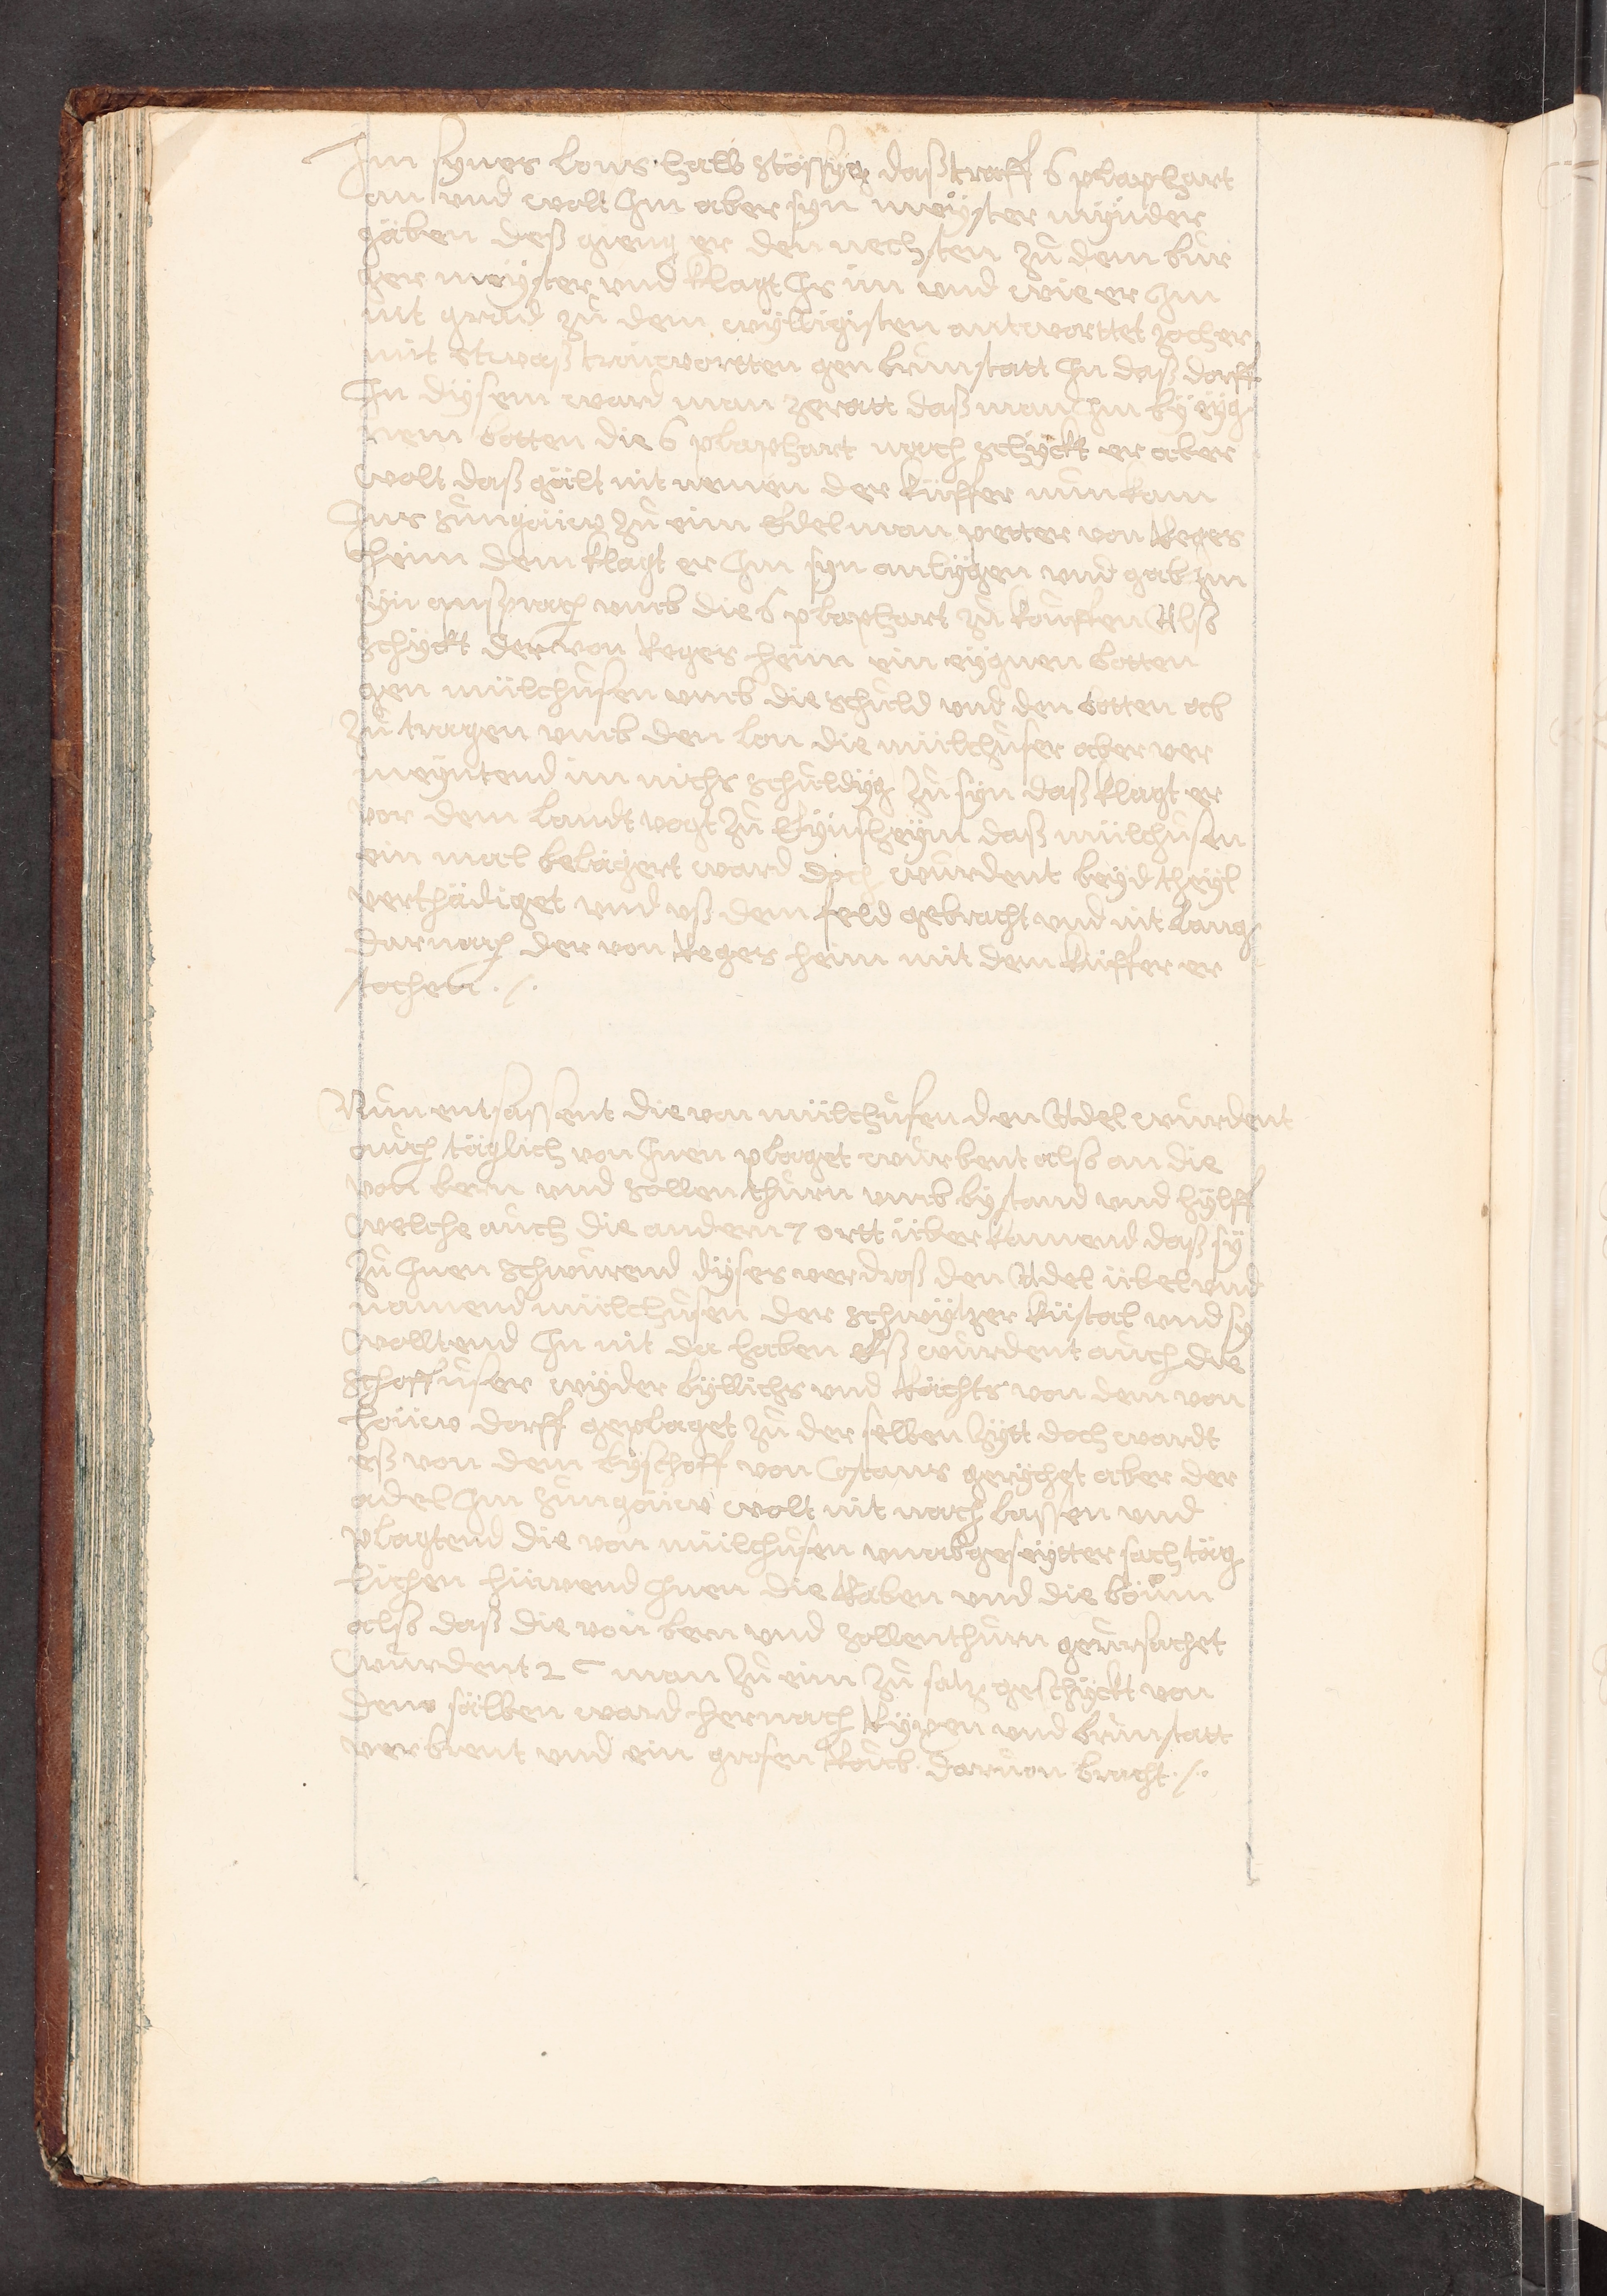 Im synes lons halb stössyg daß traff 6 plaphart
an und wolt Im aber syn meÿster mÿnder
gäben deß gieng er den nechsten zů dem bur
ger meÿster und klagt Ims und wie er Im
nit grad zů dem wÿlligisten antworttet zoch er
mit etwaß träuworten gen brunstatt In daß dorff
In dÿsem ward man zeratt daß man Im bÿ eÿg
nem botten die 6 plaphart noch schÿckt er aber
wolt daß gält nit nemen der küffer nun kam
Ins sungöüw zů eim Edelman petter von Reges
heim dem klagt er Im syn anlÿgen und gab Im
syn ansprach umb die 6 plaphart zů kouffen Alß
schÿckt der von Reges heim ein eÿgnen botten
gen mülchusen umb die schuld und den botten ab
zů tragen umb den lon die mülchuser aber ver
meÿntend im nichs schuldÿg zů syn daß klagt er
vor dem landt vogt zů Eÿnsheÿm daß mülchusen
ein mal belägert ward doch wurdent beÿd theÿl
verthädiget und uß dem feld gebracht und nit lang
darnach der von Reges heim mit dem küffer er
stochen ./.
Nun entsassent die von mülchusen den Adel wurdent
auch täglich von Inen plaget wurbent alß an die
von bern und sollenthurn umb bÿstand und hÿlff
welche auch die andern 7 ortt über kamend daß sÿ
zů Inen schwurend dÿses verdroß den Adel übel und
namend mülchusen der schwÿtzer küstal und sy
wolltend In nit da haben Eß wurdent auch die
schaffuser wÿder bÿllichs und Rächts von dem von
höüw dorff geplaget zů der selben zÿtt doch wardt
eß von dem bÿschoff von Costans gerÿchet aber der
adel Im sungöüw wolt nit nach lassen und
plagtend die von mülchusen unabgeseÿtter sach täg
lichen hüwend Inen die Räben und die böum
alß daß die von bern und sollenthurn geursachet
wurdent 2 C man zů eim zů satz geschÿckt von
denen sälben ward hernach Rÿxen und brunstatt
verbrent und ein grosen Roub daruon bracht ./.